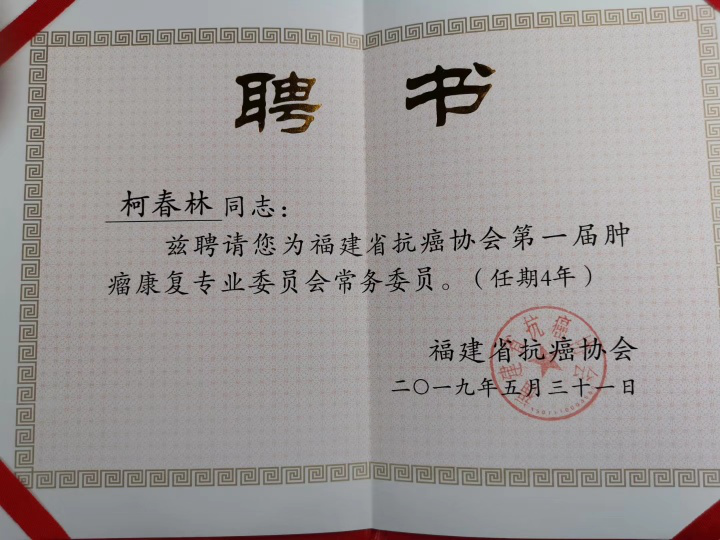 聘书
柯春林同志：
兹聘请您为福建省抗癌协会第一届肿
瘤康复专业委员会常务委员。（任期4年）
福建省抗癌协会
二〇一九年五月三十一日
福建省抗癌协会